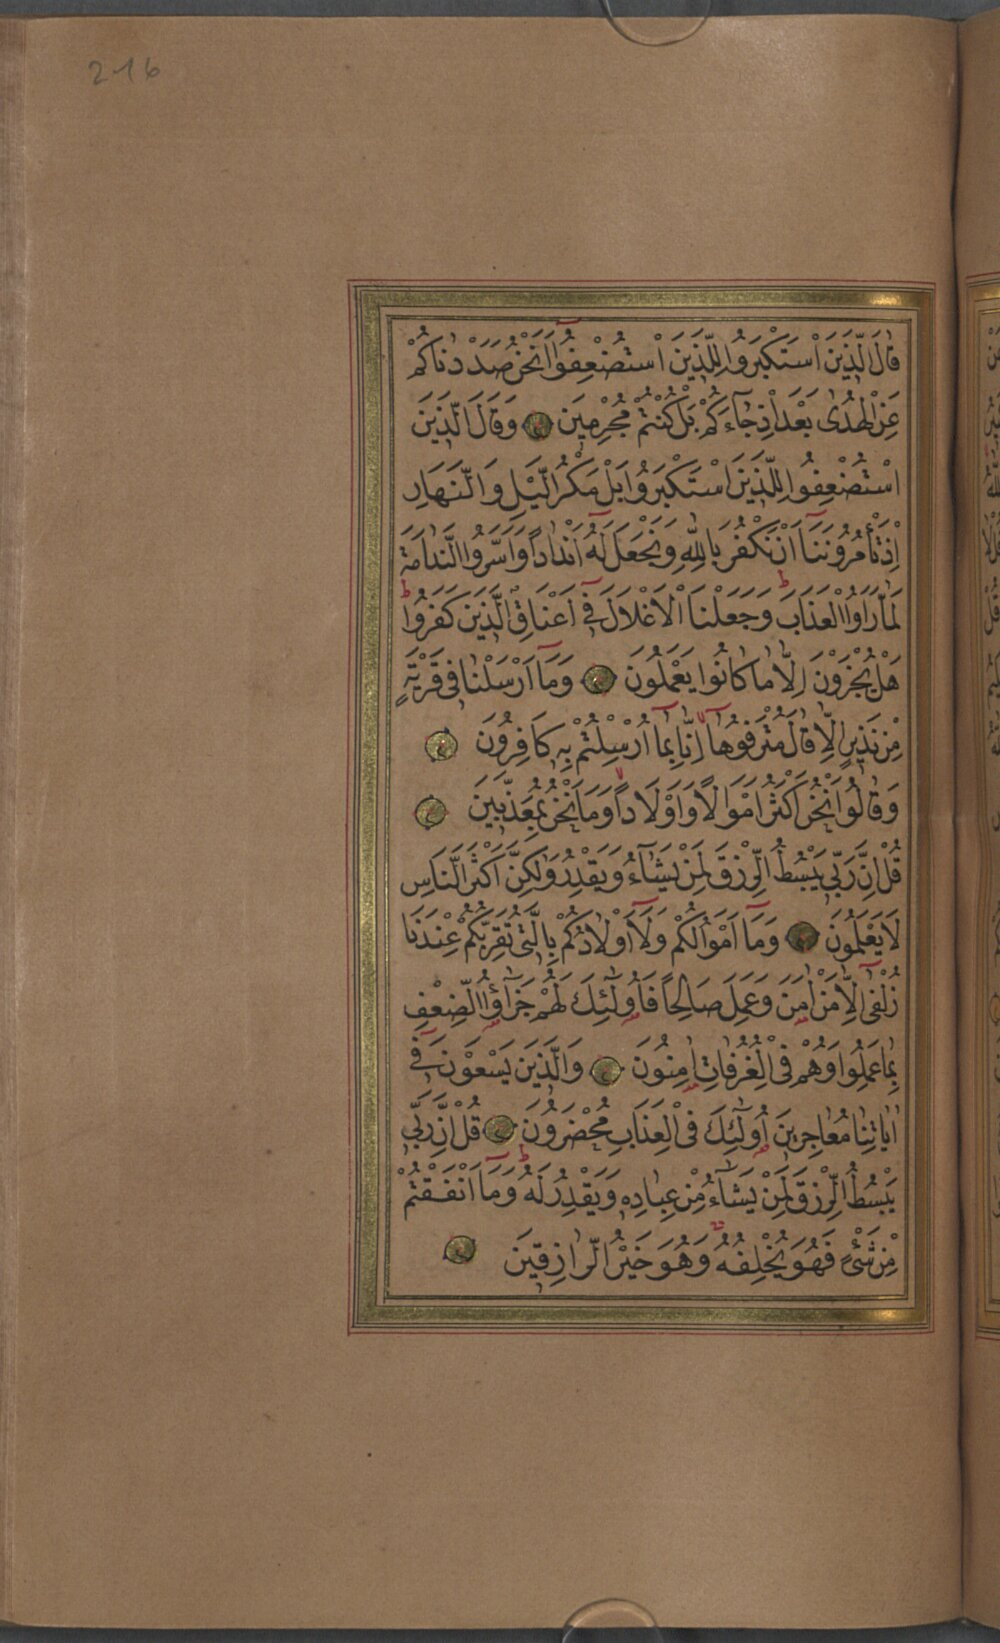 216
قَالَ الَّذِينَ اسْتَكْبَرُوا لِلَّذِينَ اسْتُضْعِفُوا أَنَحْنُ صَدَدْنَاكُمْ
عَنِ الْهُدٰى بَعْدَ اِذْ جَآءَكُمْ بَلْ كُنْتُمْ مُجْرِمِينَ وَقَالَ الَّذِينَ
اسْتُضْعِفُوا لِلَّذِينَ اسْتَكْبَرُوا بَلْ مَكْرُ الَّيْلِ وَالنَّهَارِ
اِذْ تَأْمُرُونَنَآ اَنْ نَكْفُرَ بِاللّٰهِ وَنَجْعَلَ لَهُٓ اَنْدَادًا وَاَسَرُّوا النَّدَامَةَ
لَمَّا رَاَوُا الْعَذَابَ وَجَعَلْنَا الْاَغْلَالَ فِٓي اَعْنَاقِ الَّذِينَ كَفَرُوا
هَلْ يُجْزَوْنَ اِلَّا مَا كَانُوا يَعْمَلُونَ وَمَآ اَرْسَلْنَا فِي قَرْيَةٍ
مِنْ نَذِيرٍ اِلَّا قَالَ مُتْرَفُوهَآ اِنَّا بِمَآ اُرْسِلْتُمْ بِهِ كَافِرُونَ
وَقَالُوا نَحْنُ اَكْثَرُ اَمْوَالًا وَاَوْلَادًا وَمَا نَحْنُ بِمُعَذَّبِينَ
قُلْ اِنَّ رَبِّي يَبْسُطُ الرِّزْقَ لِمَنْ يَشَآءُ وَيَقْدِرُ وَلٰكِنَّ اَكْثَرَ النَّاسِ
لَا يَعْلَمُونَ وَمَآ اَمْوَالُكُمْ وَلَآ اَوْلَادُكُمْ بِالَّتِي تُقَرِّبُكُمْ عِنْدَنَا
زُلْفٰىٓ اِلَّا مَنْ اٰمَنَ وَعَمِلَ صَالِحًا فَاُولٰٓئِكَ لَهُمْ جَزَآؤُا الضِّعْفِ
بِمَا عَمِلُوا وَهُمْ فِي الْغُرُفَاتِ اٰمِنُونَ وَالَّذِينَ يَسْعَوْنَ فِٓي
اٰيَاتِنَا مُعَاجِزِينَ اُولٰٓئِكَ فِي الْعَذَابِ مُحْضَرُونَ قُلْ اِنَّ رَبِّي
يَبْسُطُ الرِّزْقَ لِمَنْ يَشَآءُ مِنْ عِبَادِهِ وَيَقْدِرُ لَهُ وَمَآ اَنْفَقْتُمْ
مِنْ شَيْءٍ فَهُوَ يُخْلِفُهُ وَهُوَ خَيْرُ الرَّازِقِينَ